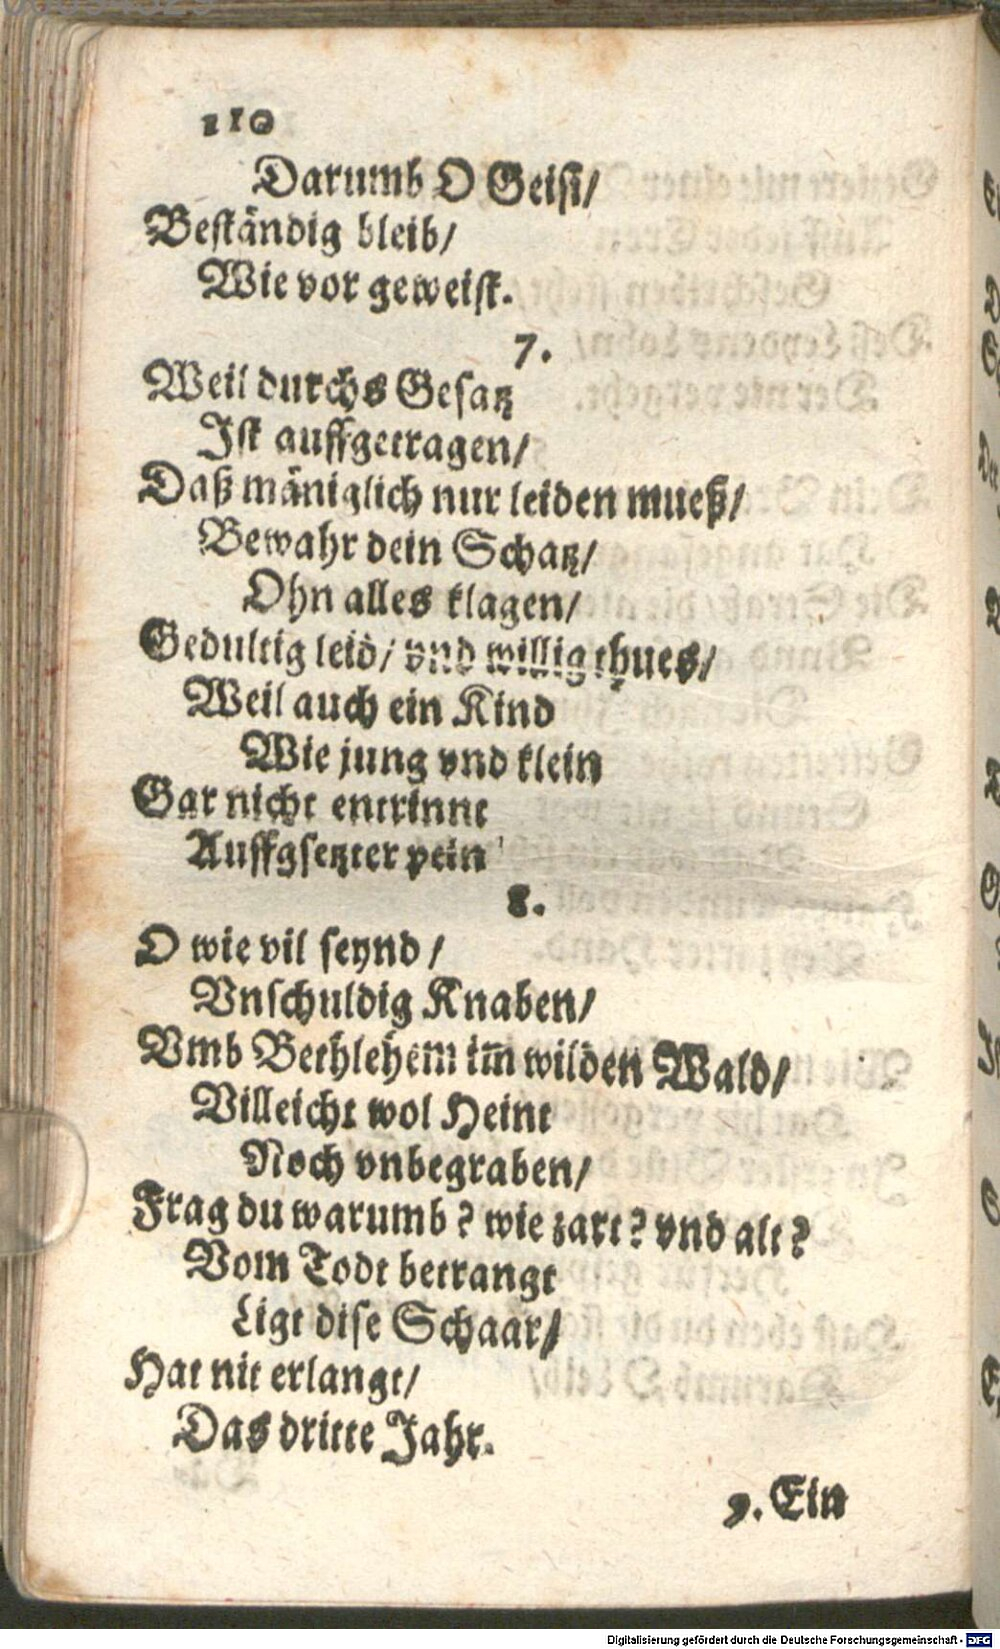 110
Darumb O Geist/
Beständig bleib/
Wie vor geweist.
7.
Weil durchs Gesatz
Ist auffgetragen/
Daß mäniglich nur leiden mueß/
Bewahr dein Schatz/
Ohn alles klagen/
Gedultig leid/ vnd willig thues/
Weil auch ein Kind
Wie jung vnd klein
Gar nicht entrinnt
Auffgsetzter pein
8.
O wie vil seynd/
Vnschuldig Knaben/
Vmb Bethlehem im̅ wilden Wald/
Villeicht wol Heint
Noch vnbegraben/
Frag du warumb? wie zart? vnd alt?
Vom Todt betrangt
Ligt dise Schaar/
Hat nit erlangt/
Das dritte Jahr.
9. Ein
Digitalisierung gefördert durch die Deutsche Forschungsgemeinschaft - DFG